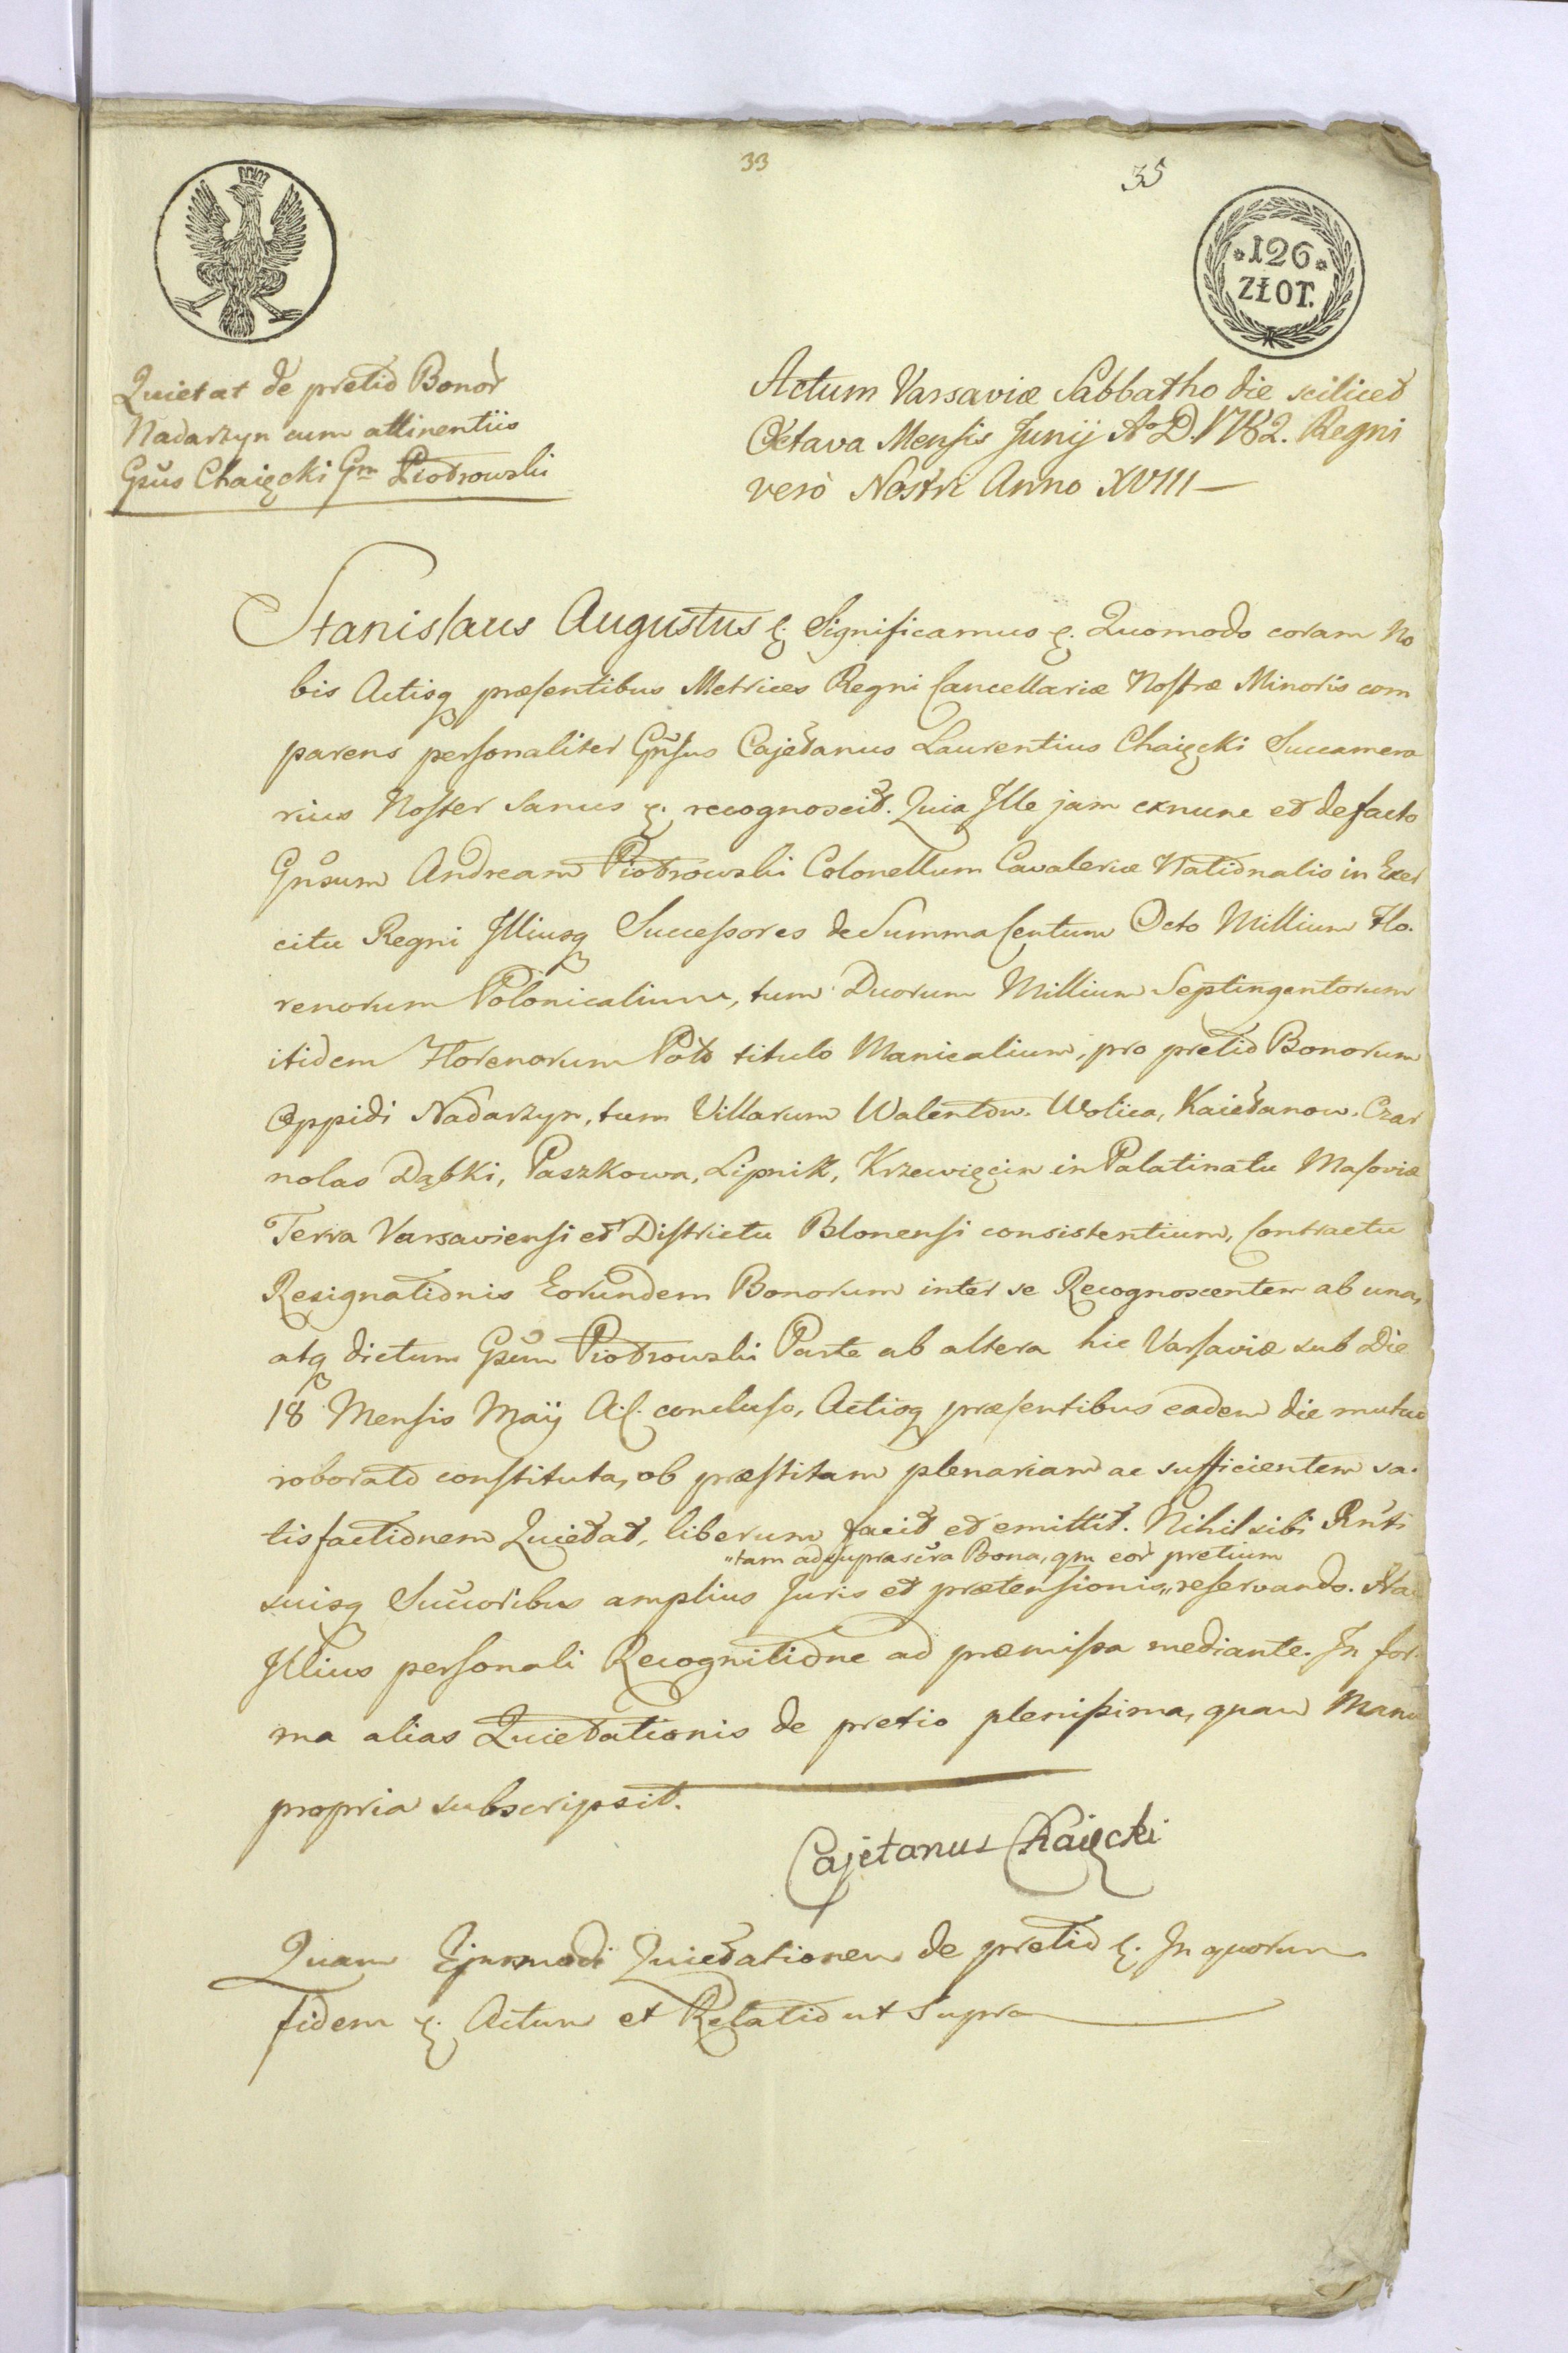 33
35
*126*
ZŁOT.
Quietat de pretio Bonor
Nadarzyn cum attinentiis
Gsus Chaięcki Gm Piotrowski
Actum Varsaviæ Sabbatho die scilicet
Octava Mensis Junij Ao D. 1782. Regni
verò Nostri Anno XVIII
Stanislaus Augustus &. Significamus &. Quomodo coram No
bis Actisq præsentibus Metrices Regni Cancellariæ Nostræ Minoris com
parens personaliter Gnsus Cajetanus Laurentius Chaięcki Succamera
rius Noster Sanus &. recognoscit. Quia Ille jam exnunc et defacto
Gnsum Andream Piotrowski Colonellum Cavaleriæ Nationalis in Exer
citu Regni Illiusq Successores de Summa Centum Octo Millium Flo.
renorum Polonicalium, tum Duorum Millium Septingentorum
itidem Florenorum Polo titulo Manicalium, pro pretio Bonorum
Oppidi Nadarzyn, tum Villarum Walentow. Wolica, Kaietanow. Czar
nolas Dąbki, Paszkowa, Lipnik, Krzewięcin in Palatinatu Masoviæ
Terra Varsaviensi et Districtu Blonensi consistentium, Contractu
Resignationis Eorundem Bonorum inter se Recognoscentem ab una,
atq dictum Gsum Piotrowski Parte ab altera hic Varsaviæ sub Die
18 Mensis Maÿ A. C. concluso, Actisq præsentibus eadem die mutuo
roborato constituta, ob præstitam plenariam ac sufficientem sa.
tisfactionem Quietat, liberum facit et emittit. Nihil sibi Rnti
"tam ad suprascra Bona, qm eor pretium
suisq Succoribus amplius Juris et prætensionis "reservando. Hac
Illius personali Recognitione ad præmissa mediante. In for.
ma alias Quietationis de pretio plenissima, quam Manu
propria subscripsit.
Cajetanus Chaięcki
Quam Ejusmodi Quietationem de pretio &. In quorum
fidem &. Actum et Relatio ut Supra